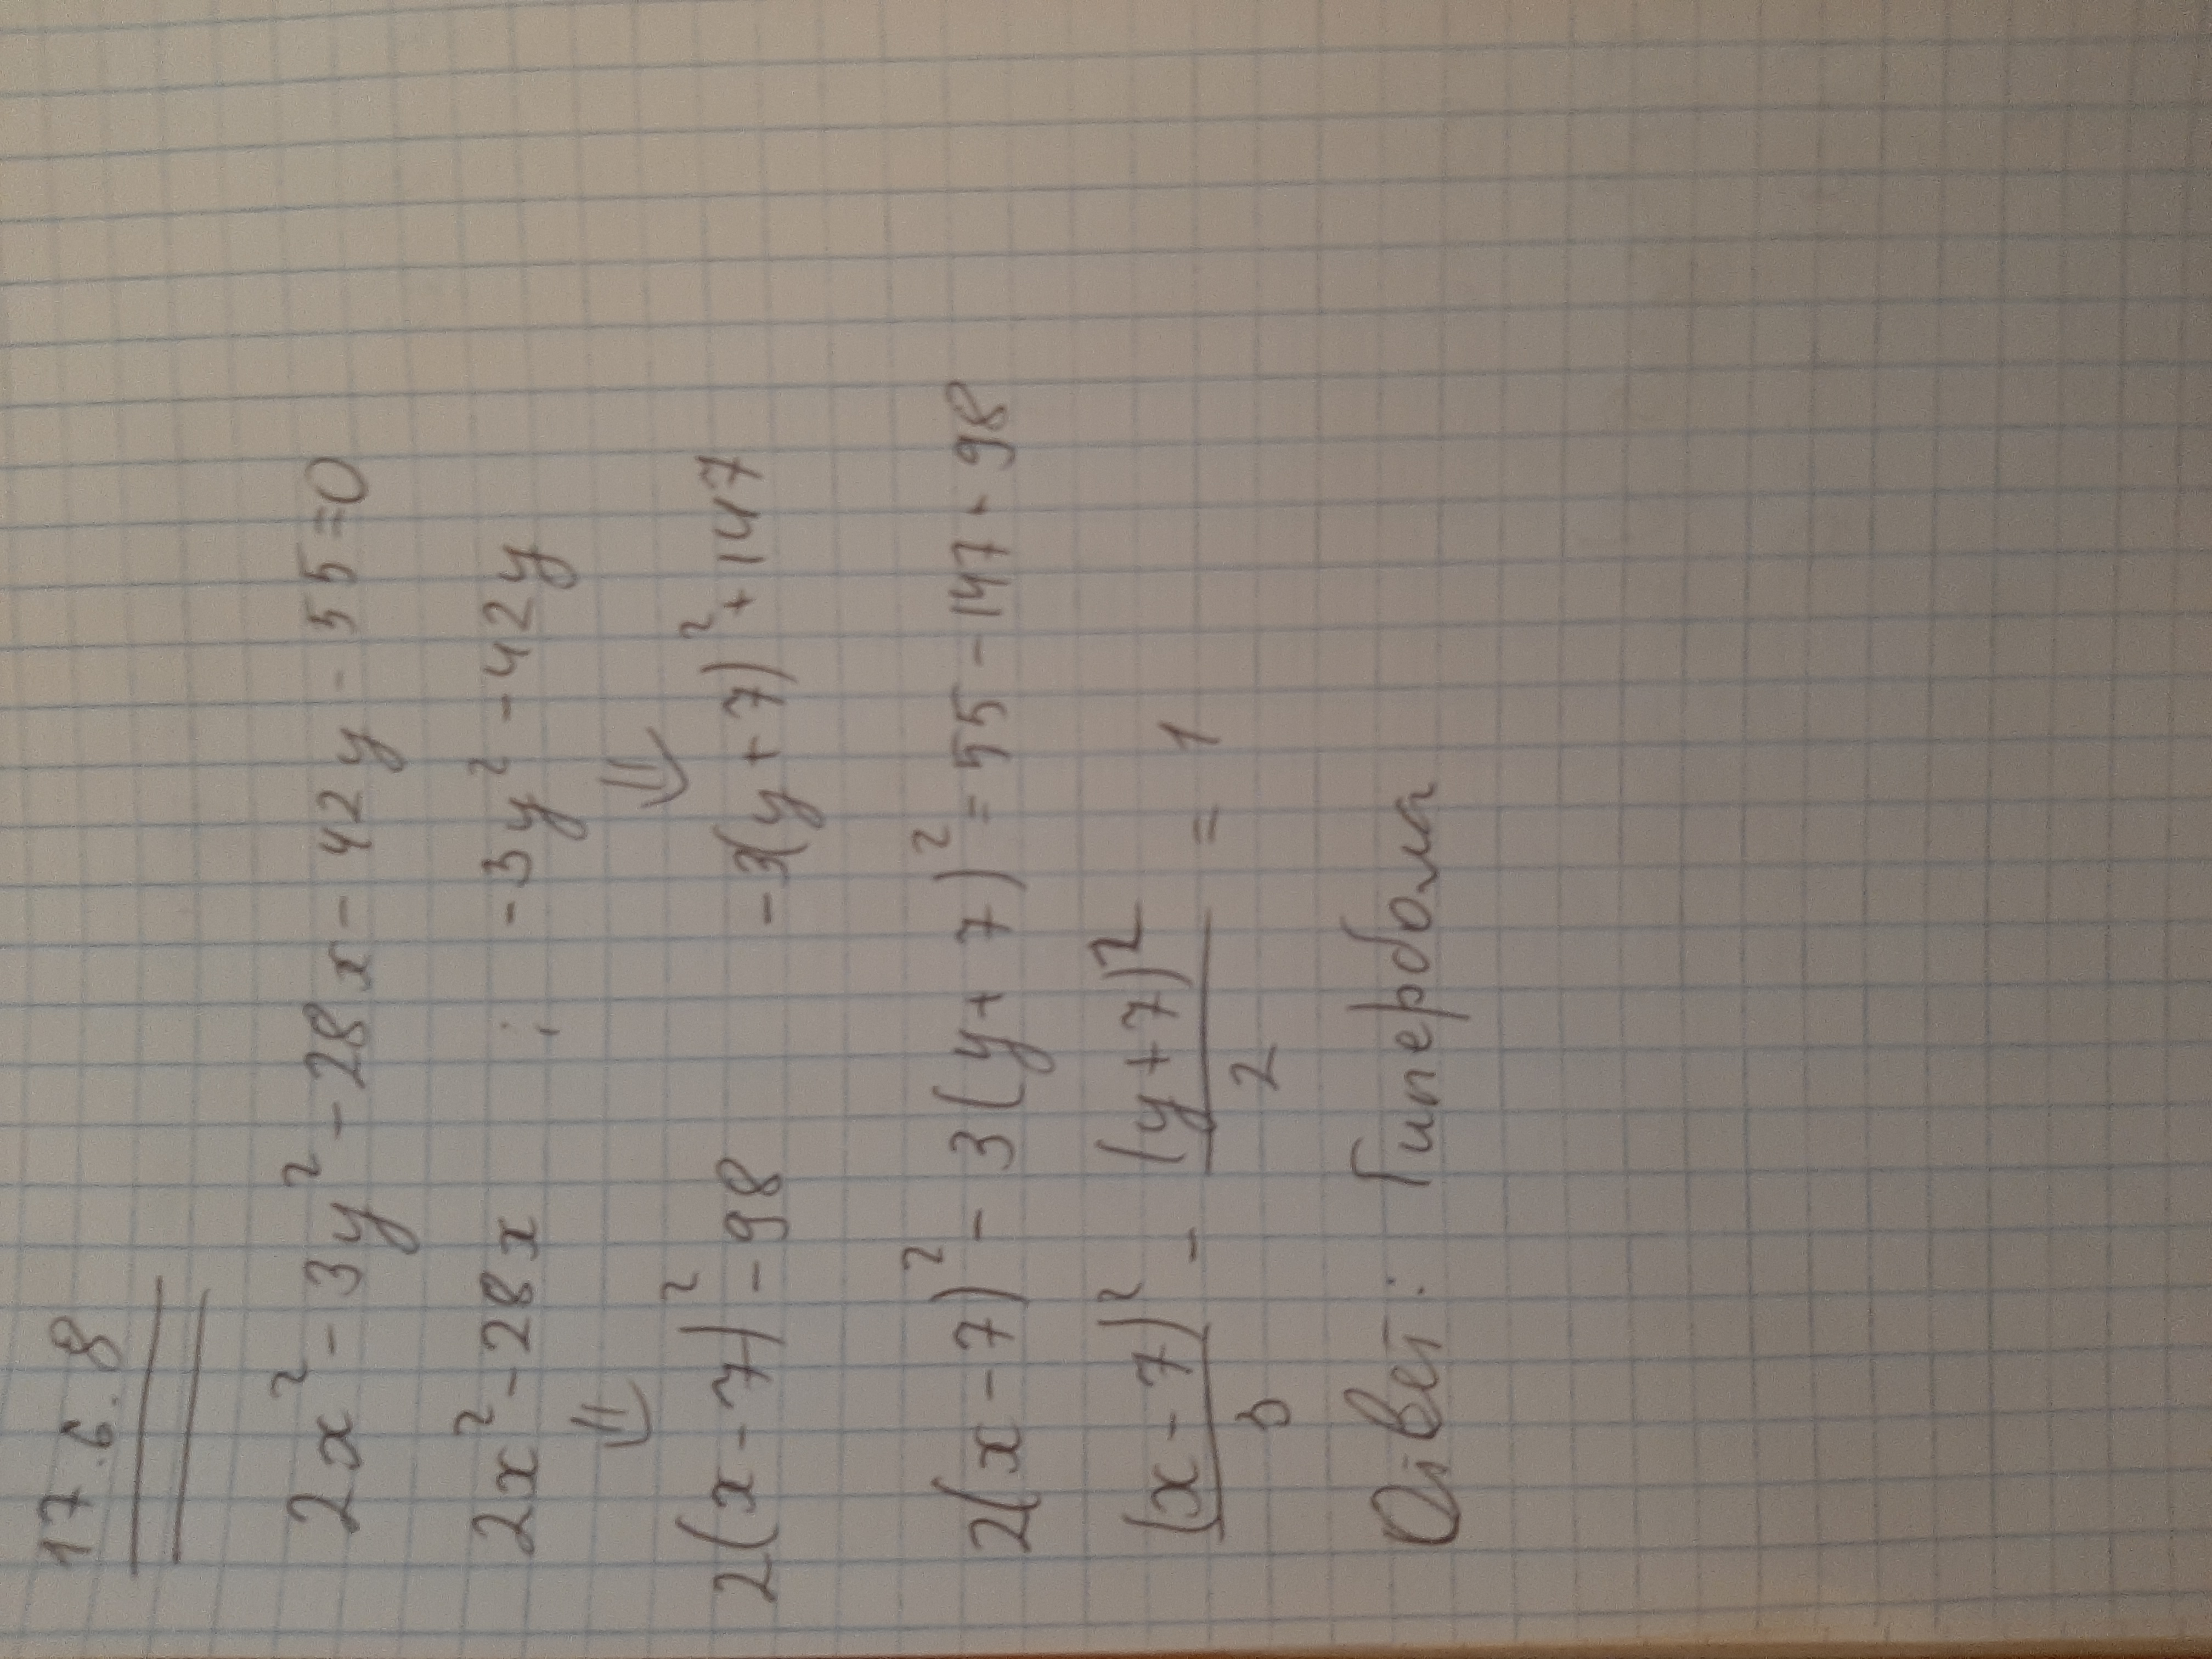 17.6.8
2x² - 3y² - 28x - 42y - 55 = 0
2x² - 28x ; -3y² - 42y
⇓ ⇓
2(x - 7)² - 98 -3(y + 7)² + 147
2(x - 7)² - 3(y + 7)² = 55 - 147 + 98
(x - 7)²/3 - (y + 7)²/2 = 1
Ответ: Гипербола